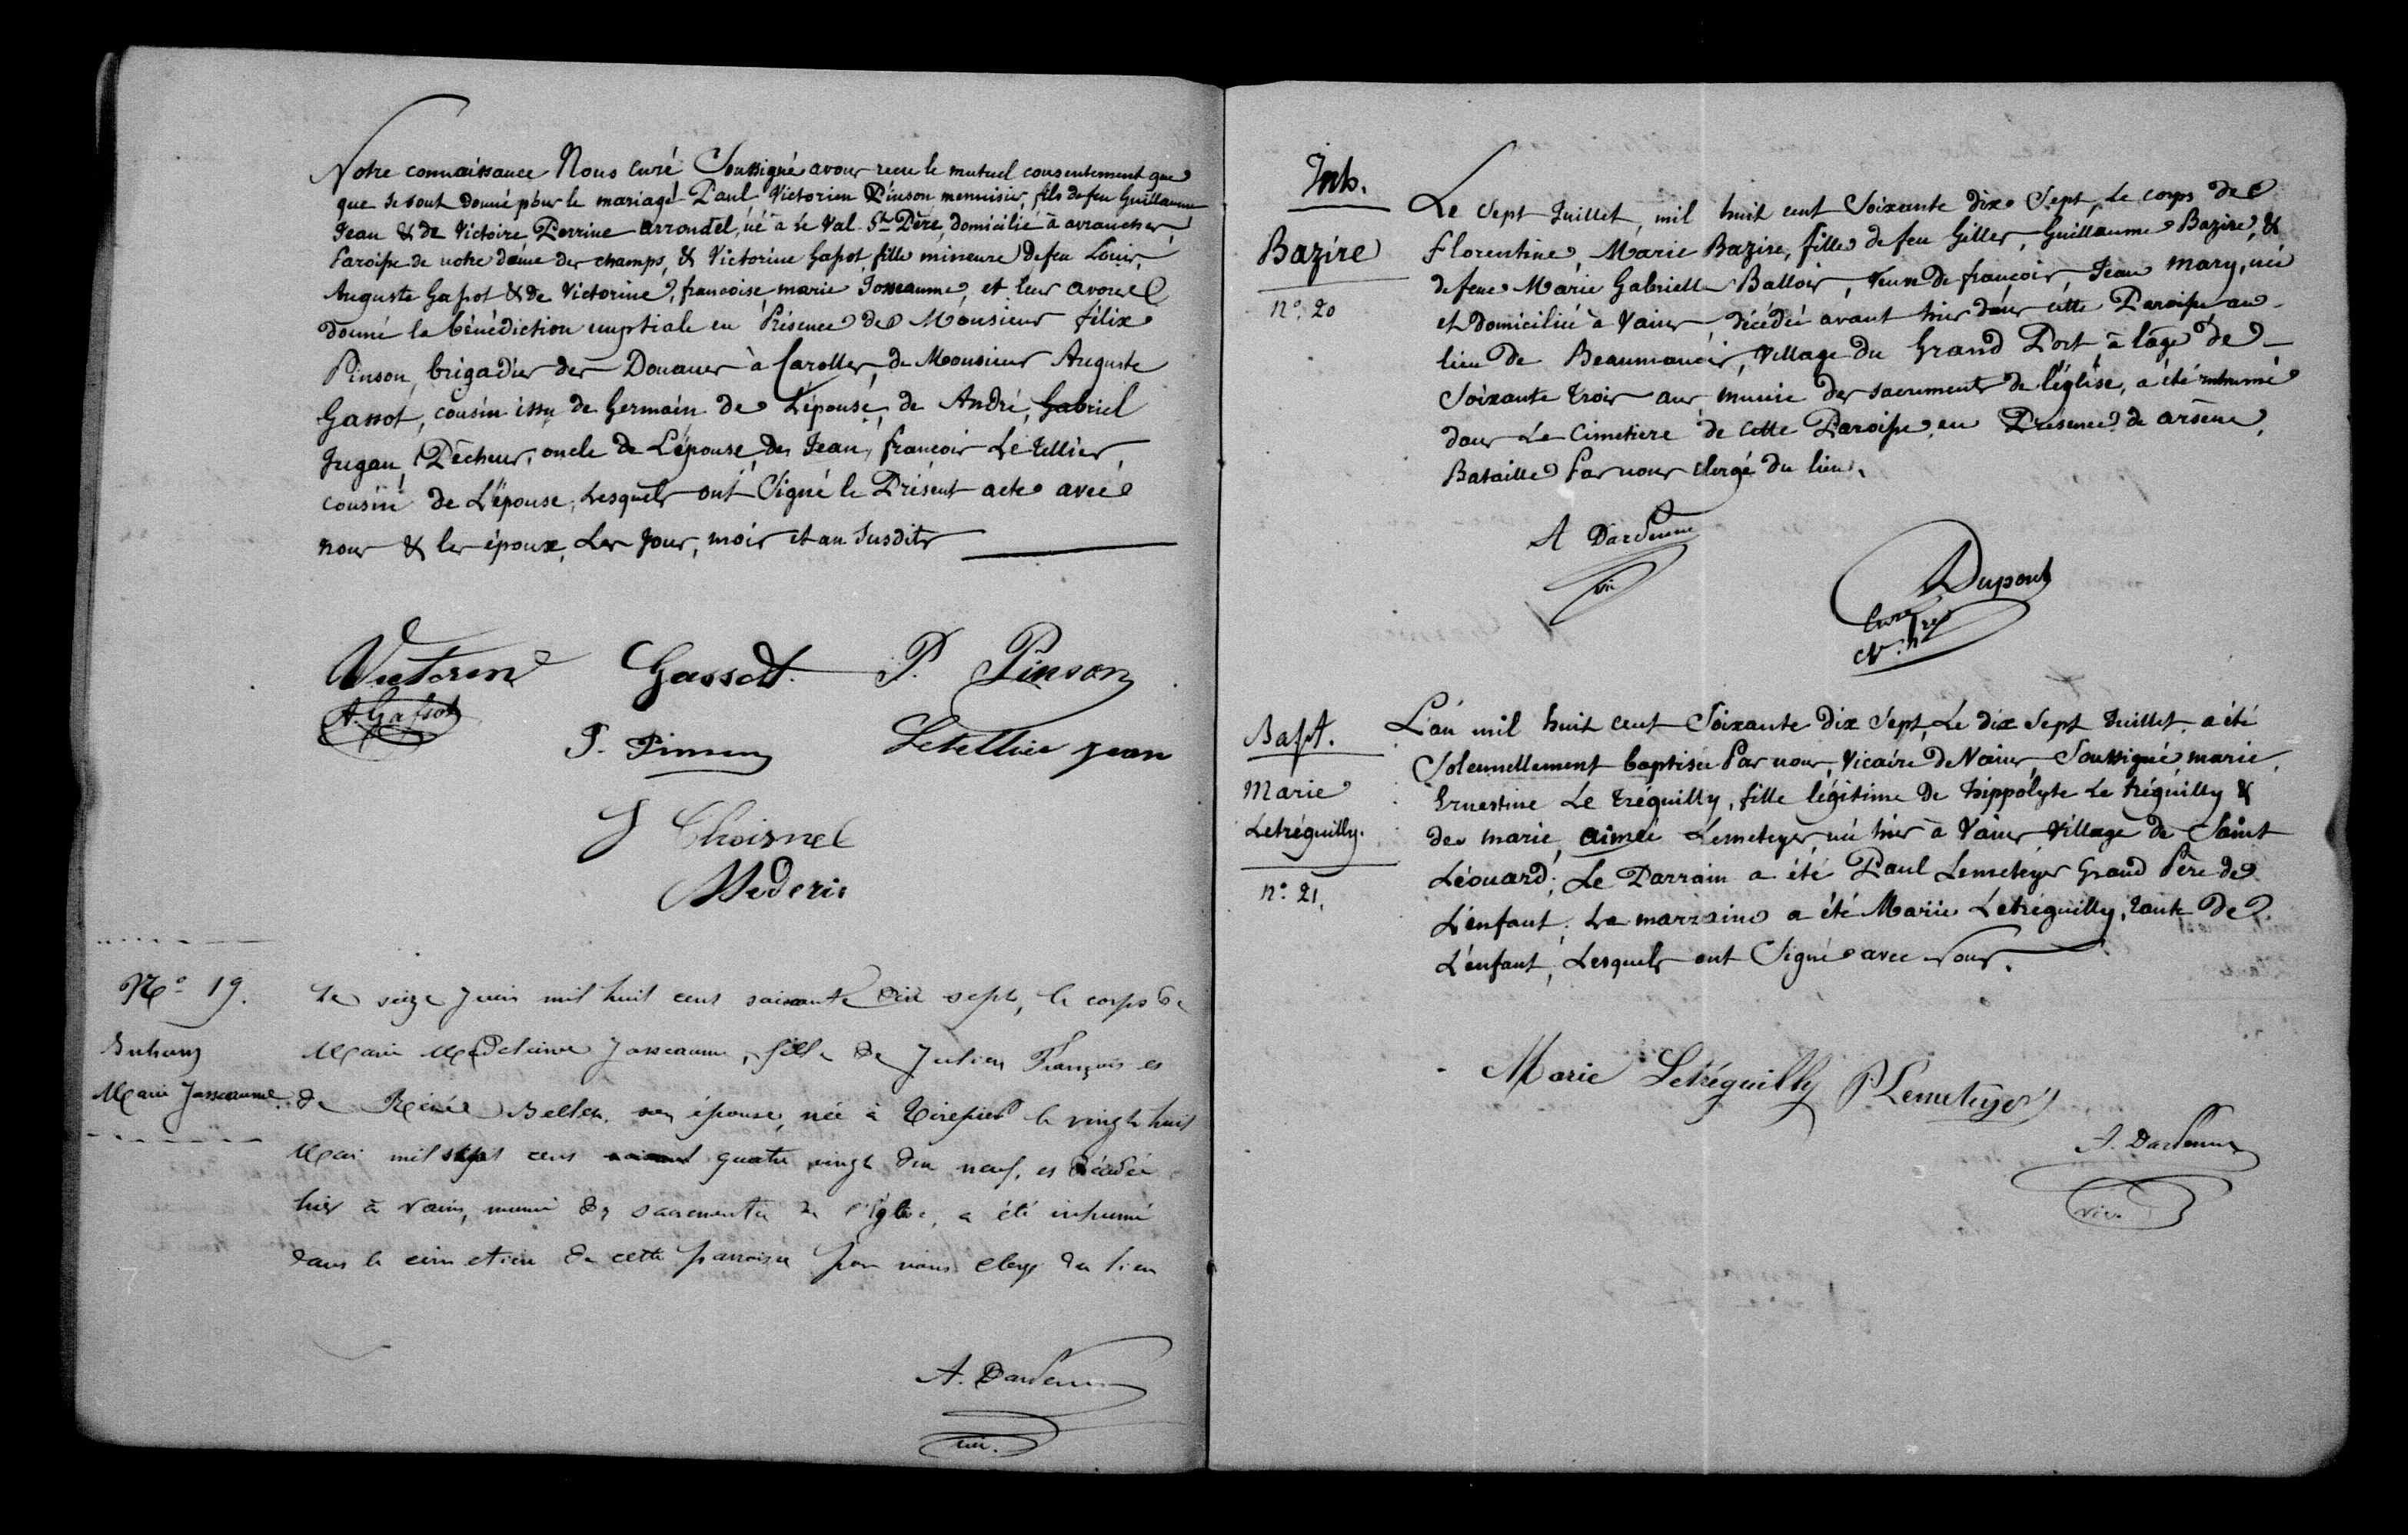 Notre connaissance Nous curé Soussigné avons recu le mutuel consentement que
que se sont donné pour le mariage Paul, Victorien Pinson menuisier, fils de feu Guillaume
Jean & de Victoire Perrine arrondel, né à le Val-St-Père, domicilié à avranches,
Paroisse de notre dame des champs, & Victorine Gassot fille mineure de feu Louis,
Auguste Gassot & de Victorine, francoise, marie Josseaume, et leur avons
donné la bénédiction nuptiale en Présence de Monsieur félix
Pinson, brigadier des Douanes à Carolles, de Monsieur Auguste
Gassot, cousin issu de Germain de L'épouse, de André, Gabriel
Jugan, Pêcheur, oncle de L'épouse, de Jean, francois Le Tellier,
cousin de L'épouse, Lesquels ont Signé le Présent acte avec
nous & les époux, Les Jour, mois et an Susdits
Victorine Gassot. P. Pinson
A. Gassot
F. Pinson Letellier jean
J Choisnel
Mederic
No 19.
Inhum
Marie Josseaume.
Le seize Juin mil huit cent soixante dix sept, le corps de
Marie Madeleine Josseaume, fille de Julien François et
de Renée son épouse, née à Tirepied le vingt huit
Mai mil sept cent quatre vingt dix neuf, et décédée
hier à Vains, munie des sacrements de l'église, a été inhumé
dans le cimetière de cette parroisse par nous clergé du lieu
A. Dardenne
vic.
Inh.
Bazire
no. 20
Le Sept Juillet, mil huit cent Soixante dix Sept, Le corps de
florentine, Marie Bazire, fille de feu Gilles, Guillaume Bazire, &
de feue Marie Gabrielle Ballois, Veuve de françois, Jean Mary, née
et Domiciliée à Vains, décédée avant hier dans cette Paroisse au
lieu de Beaumanoir, Village du Grand Port, à l'âge de
Soixante trois ans, munie des sacrements de l'église, a été inhumé
dans Le Cimetiere de Cette Paroisse, en Présence de arsène,
Bataille Par nous clergé du lieu.
A Dardenne
vic
Dupont
Curé
Bapt.
Marie
Letréguilly.
no. 21.
L'an mil huit cent Soixante Dix Sept, Le dix Sept Juillet a été
Solennellement baptisée Par nous, Vicaire de Vains, Soussigné, marie,
Ernestine Le tréguilly, fille légitime de hippolyte Le tréguilly &
de marie, aimée Lemeteyer, née hier à Vains, Village de Saint
Léonard; Le Parrain a été Paul Lemeteyer Grand Père de
L'enfant; La marraine a été Marie Letréguilly, tante de
L'enfant, Lesquels ont Signé avec Nous.
Marie Letréguilly P. Lemeteyer
A. Dardenne
vic.